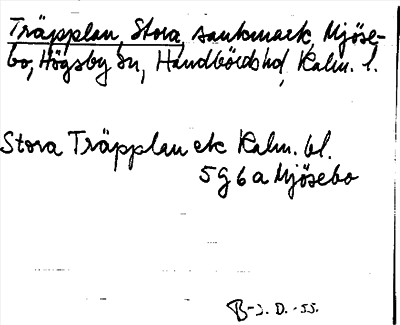 Träpplan, Stora, sankmark, Mjöse-
bo, Högsby sn, Handbörds hd, Kalm. l.
Stora Träpplan ek Kalm. bl.
5 g 6 a Mjösebo
D. -55.